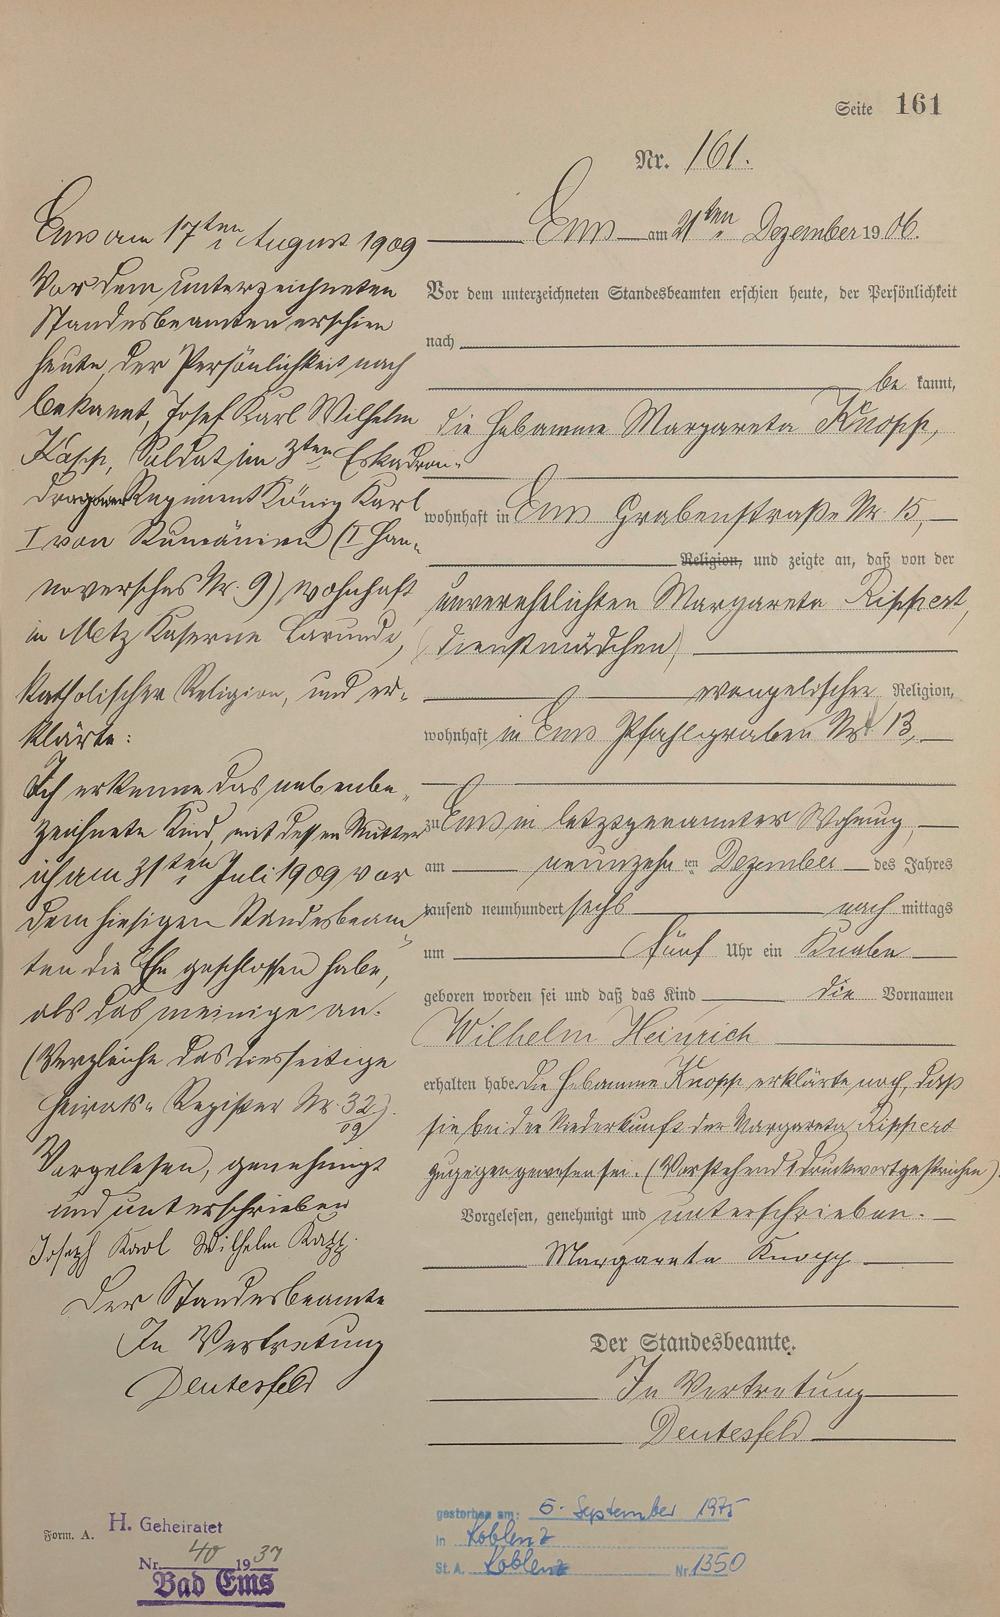 Seite 161
Nr. 161.
Ems am 21ten Dezember 1906.
Vor dem unterzeichneten Standesbeamten erschien heute, der Persönlichkeit
nach
be kannt,
die Hebamme Margareta Knopp,
wohnhaft in Ems Grabenstraße Nr. 15,
Religion, und zeigte an, daß von der
unverehelichten Margareta Rippert,
(Dienstmädchen)
evangelischer Religion,
wohnhaft in Ems Pfahlgraben Nr. 13,
zu Ems in letztgenannter Wohnung,
am neunzehn ten Dezember des Jahres
tausend neunhundert sechs nach mittags
um fünf Uhr ein Knabe
geboren worden sei und daß das Kind die Vornamen
Wilhelm Heinrich
erhalten habe. Die Hebamme Knopp erklärte noch, daß
sie bei der Niederkunft der Margareta Rippert
zugegen gewesen sei. (Vorstehend 1 Druckwort gestrichen)
Vorgelesen, genehmigt und unterschrieben.
Margareta Knopp
Der Standesbeamte.
In Vertretung
Deutesfeld
Ems am 17ten August 1909
Vor dem unterzeichneten
Standesbeamten erschien
heute, der Persönlichkeit nach
bekannt, Josef Karl Wilhelm
Kapp, Soldat im 3ten Eskadron-
Dragoner Regiment König Karl
I von Rumänien (I Han-
noversches Nr. 9), wohnhaft
in Metz Kaserne
katholischer Religion, und er-
klärte:
Ich erkenne das nebenbe-
zeichnete Kind, mit dessen Mutter
ich am 31ten Juli 1909 vor
dem hiesigen Standesbeam-
ten die Ehe geschlossen habe,
als das meinige an.
(Vergleiche das diesseitige
Heirats-Register Nr. 32/09).
Vorgelesen, genehmigt
und unterschrieben
Joseph Karl Wilhelm Kapp.
Der Standesbeamte
In Vertretung
Deutesfeld
Form. A.
H. Geheiratet
Nr. 40 1937
Bad Ems
gestorben am: 5. September 1975
in Koblenz
St. A. Koblenz Nr. 1350